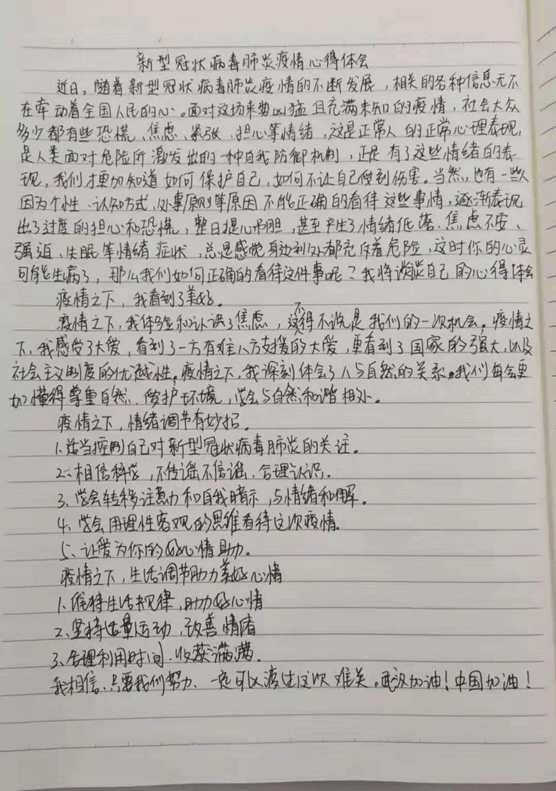 新型冠状病毒肺炎疫情心得体会
近日,随着新型冠状病毒肺炎疫情的不断发展,相关的各种信息无不
在牵动着全国人民的心。面对这场来势凶猛且充满未知的疫情,社会大众
多少都有些恐慌、焦虑、紧张、担心等情绪,这是正常人的正常心理表现,
是人类面对危险所激发出的一种自我防御机制,正是有了这些情绪的表
现,我们才更加知道如何保护自己,如何不让自己受到伤害。当然,也有一些人
因为个性、认知方式、处事原则等原因不能正确的看待这些事情,逐渐表现
出了过度的担心和恐慌,整日提心吊胆,甚至产生了情绪低落、焦虑不安、
强迫、失眠等情绪症状,总感感觉身边到处都充斥着危险,这时你的心灵
可能生病了,那么我们如何正确的看待这件事呢?我将谈谈自己的心得体会
疫情之下,我看到了美好。
疫情之下,我体验和认识了焦虑,这不得不说是我们的一次机会。疫情之
下,我感受了大爱,看到了一方有难八方支援的大爱,更看到了国家的强大,以及
社会主义制度的优越性。疫情之下,我深刻体会了人与自然的关系。我们每会更
加懂得尊重自然、保护环境,学会与自然和谐相处。
疫情之下,情绪调节有妙招。
1.适当应用自己对新型冠状病毒肺炎的关注。
2.相信科学,不传谣不信谣、合理认识。
3、学会转移注意力和自我暗示,与情绪和解。
4、学会用理性客观的思维看待这次疫情。
5、让爱为你的好心情助力。
疫情之下,生活调节助力美好心情
1.维持生活规律,助力好心情
2.坚持适量运动,改善情绪
3.合理利用时间,收获满满。
我相信,只要我们努力、一定可以渡过这次难关。武汉加油!中国加油!